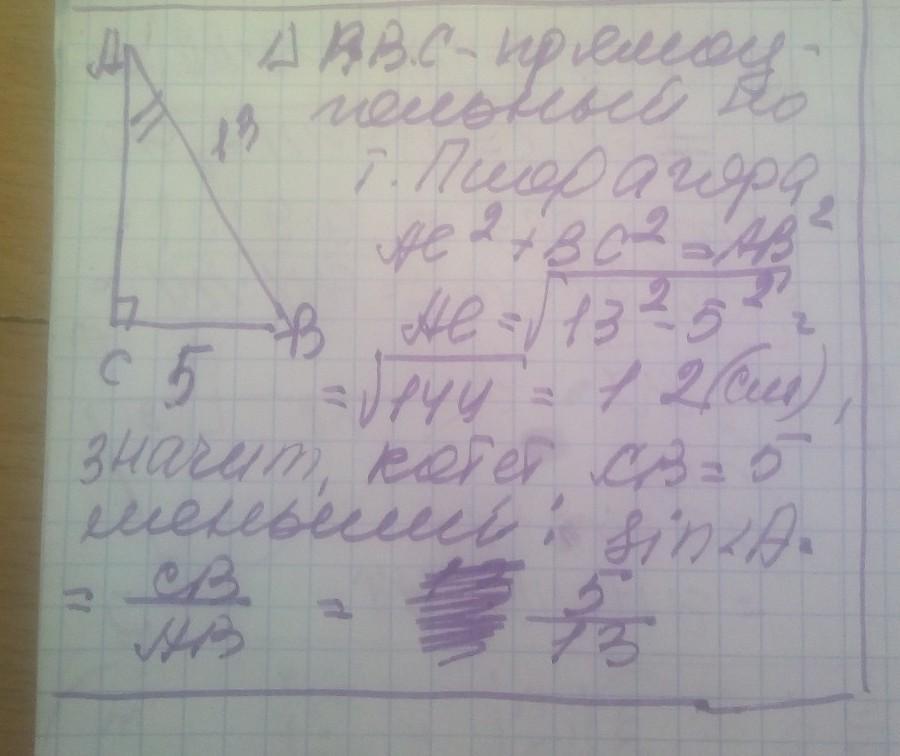 A
13
C
5
B
Δ АВС - прямоу-
гольный по
т. Пифагора
AC² + BC² = AB²
AC = √13² - 5² =
= √144 = 12 (см),
значит, катет CB = 5
меньший: sin∠A =
= CB/AB = 5/13